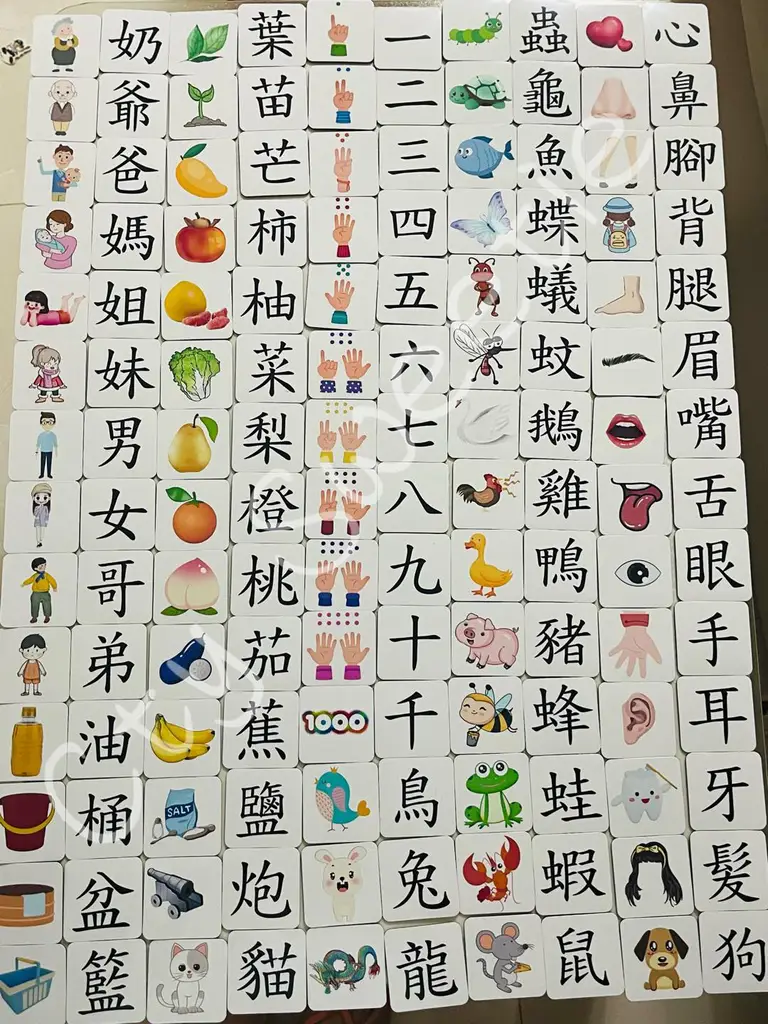 奶 葉 一 蟲 心
爺 苗 二 龜 鼻
爸 芒 三 魚 腳
媽 柿 四 蝶 背
姐 柚 五 蟻 腿
妹 菜 六 蚊 眉
男 梨 七 鵝 嘴
女 橙 八 雞 舌
哥 桃 九 鴨 眼
弟 茄 十 豬 手
油 蕉 1000 千 蜂 耳
桶 SALT 鹽 鳥 蛙 牙
盆 炮 兔 蝦 髮
籃 貓 龍 鼠 狗